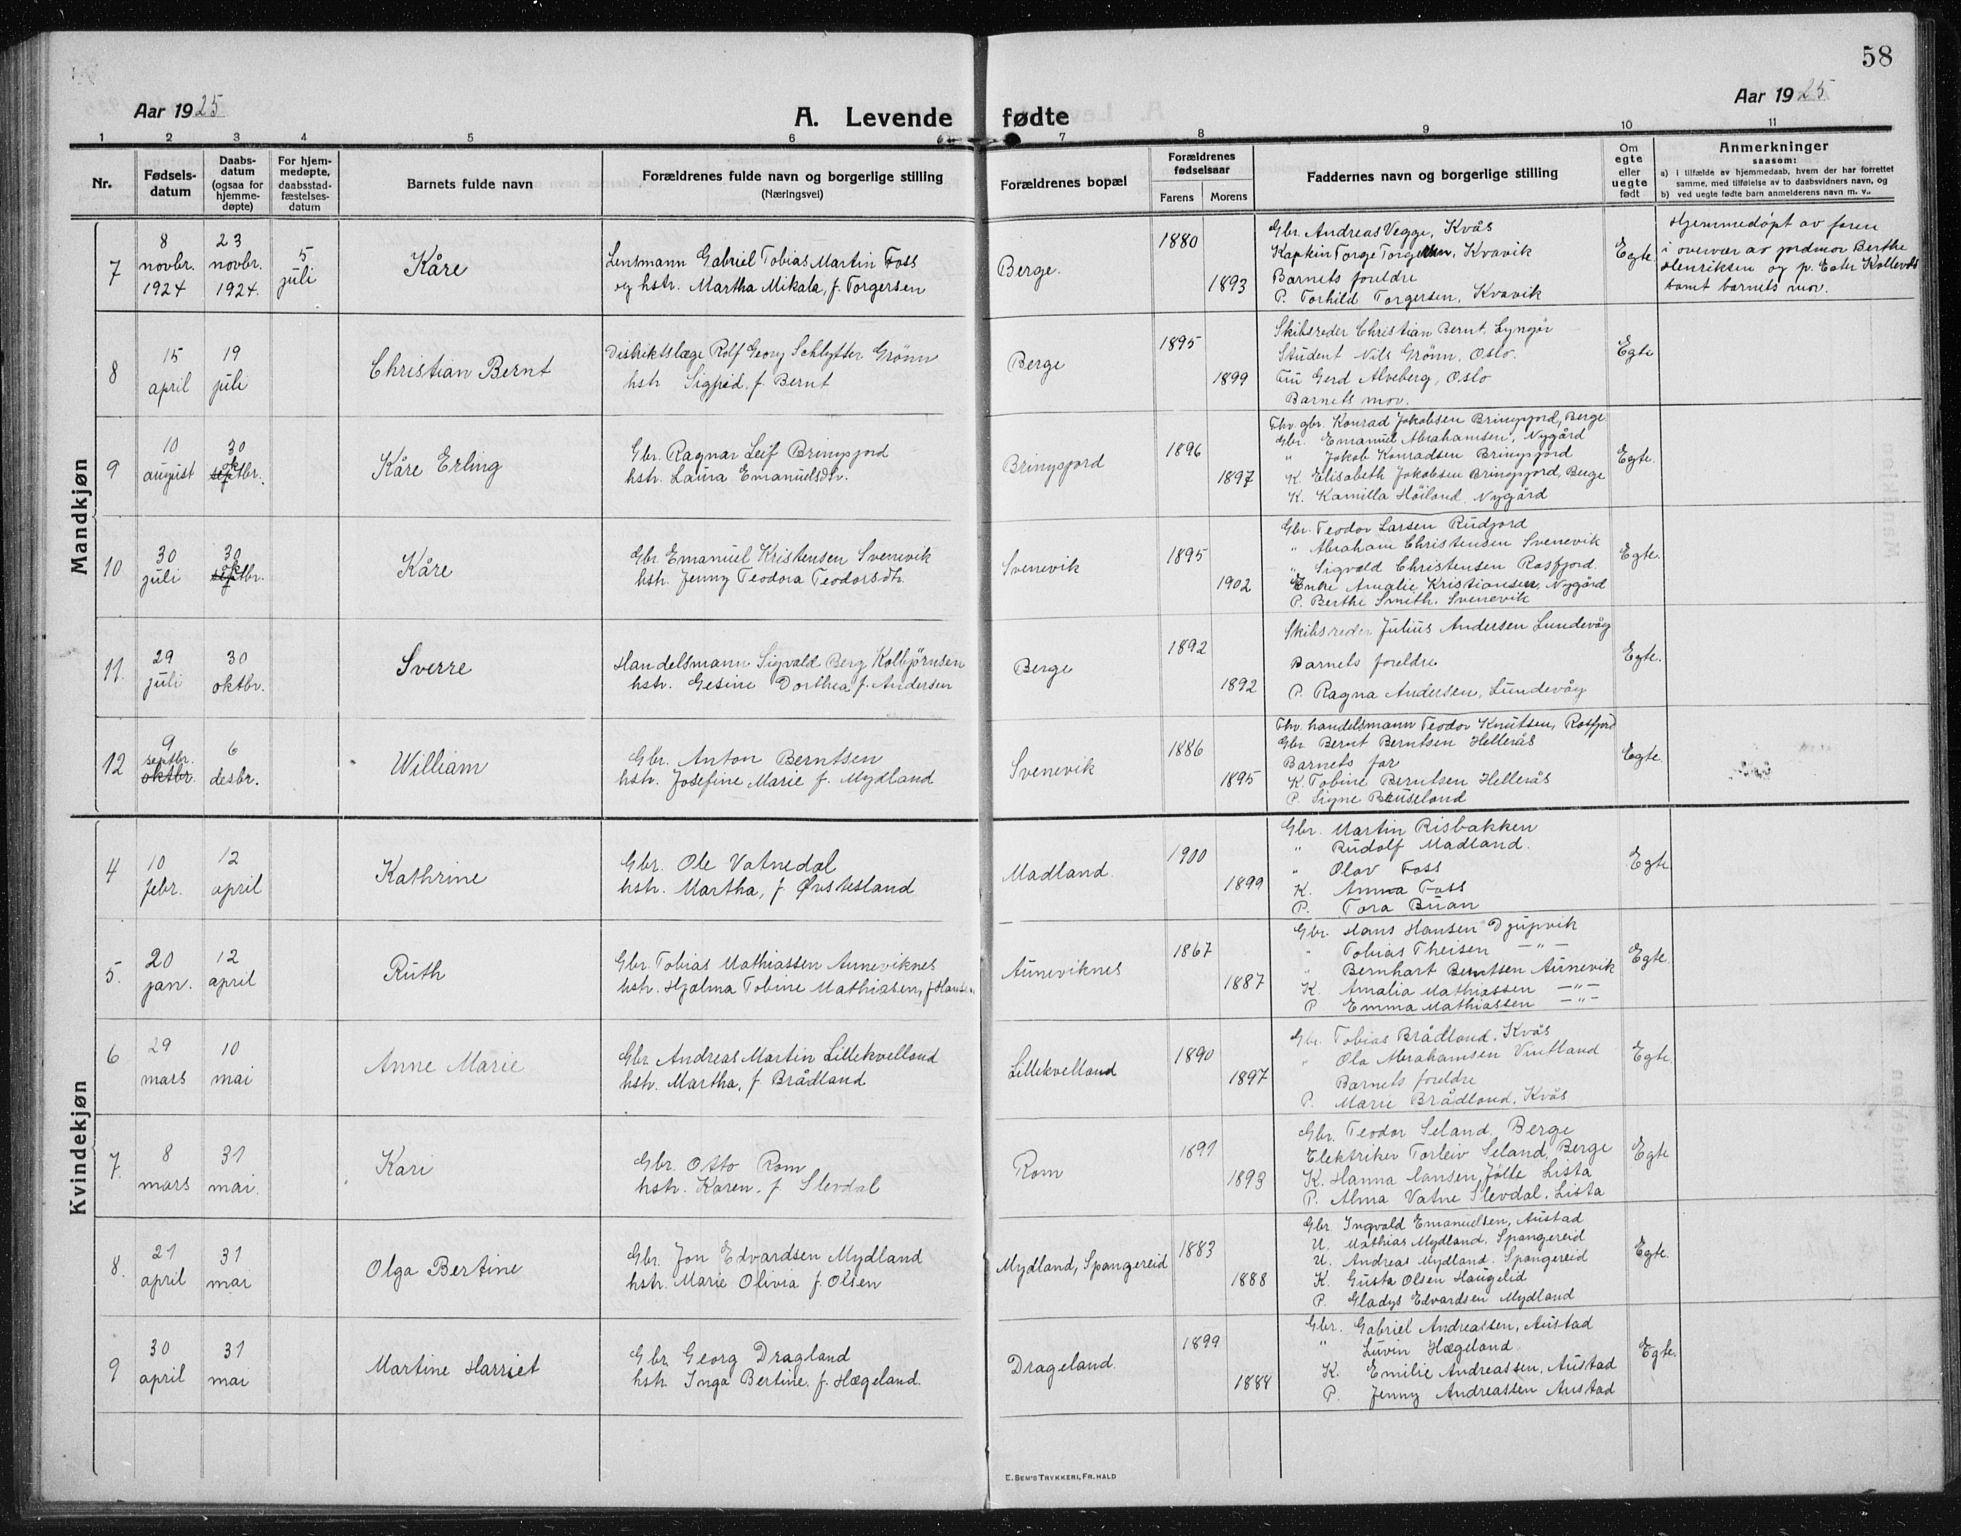 58
Aar 1925
A. Levende fødte
Aar 1925
1 2 3 4 5 6 7 8 9 10 11
Nr.
Fødsels-
datum
Daabs-
datum
(ogsaa for
hjemme-
døpte)
For hjem-
medøpte,
daabsstad-
fæstelses-
datum
Barnets fulde navn
Forældrenes fulde navn og borgerlige stilling
(Næringsvei)
Forældrenes bopæl
Forældrenes
fødselsaar
Farens Morens
Faddernes navn og borgerlige stilling
Om
egte
eller
uegte
født
Anmerkninger
saasom:
a) i tilfælde av hjemmedaab, hvem der har forrettet
samme, med tilføielse av to daabsvidners navn, og
b) ved uegte fødte barn anmelderens navn m. v..
Mandkjøn
7
8
novbr.
1924
23
novbr.
1924.
5
juli
Kåre
Lensmann Gabriel Tobias Martin Foss
og hstr. Martha Mikala, f. Torgersen
Berge.
1880
1893
Gbr. Andreas Vegge, Kvås
Kaptein Torge Torgersen, Kvavik
Barnets foreldre
P. Torhild Torgersen, Kvavik
Egte.
Hjemmedøpt av faren
i overvær av jordmor Berthe
Henriksen og p. Ester
samt barnets mor.
8
15
april
19
juli
Christian Bernt
Distriktslæge Rolf Georg Schlytter Grönn
hstr Sigfrid, f. Bernt
Berge
1895
1899
Skibsreder Christian Bernt, Lyngör
Student Nils Grönn, Oslo.
Fru Gerd Alveberg, Oslo
Barnets mor.
Egte
9
10
august
30
oktbr.
Kåre Erling
Gbr. Ragnar Leif Bringsjord
hstr. Laura Emanuelsdtr.
Bringsjord
1896
1897
Fhv. gbr. Konrad Jakobsen Bringsjord, Berge
Gbr. Emanuel Abrahamsen, Nygård
" Jakob Konradsen Bringsjord
K. Elisabeth Jakobsen Bringsjord, Berge
K. Kamilla Höiland, Nygård
Egte.
10
30
juli
30
oktbr.
Kåre
Gbr. Emanuel Kristensen Svenevik
hstr. Jenny Teodora Teodorsdtr.
Svenevik
1895
1902
Gbr. Teodor Larsen Rudjord
" Abraham Christensen Svenevik
" Sigvald Christensen Rosfjord.
Enke Amalie Kristiansen, Nygård
P. Berthe Smith, Svenevik
Egte.
11.
29
juli
30
oktbr.
Sverre
Handelsmann Sigvald Berg Kolbjørnsen
hstr. Gesine Dorthea f. Andersen
Berge
1892
1892
Skibsreder Julius Andersen Lundevåg
Barnets foreldre
P. Ragna Andersen, Lundevåg
Egte.
12
9
septbr.
oktbr.
6
desbr.
William
Gbr. Anton Berntsen
hstr. Josefine Marie f. Mydland
Svenevik
1886
1895
Fhv. handelsmann Teodor Knutsen, Rosfjord
Gbr Bernt Berntsen Hellerås
Barnets far
K. Tobine Berntsen Hellerås
P. Signe Buseland
Egte.
Kvindekjøn
4
10
febr.
12
april
Kathrine
Gbr. Ole Vatnedal
hstr. Martha, f. Øvstesland
Madland.
1900
1899
Gbr. Martin Risbakken
" Rudolf Madland.
" Olav Foss
K. Anna Foss
P. Tora Buan
Egte.
5.
20
jan.
12
april
Ruth
Gbr. Tobias Mathiassen Auneviknes
hstr. Hjalma Tobine Mathiasen, f. Hansen
Auneviknes
1867
1887
Gbr. Hans Hansen Djupvik
" Tobias Theisen — " —
" Bernhart Berntsen Aunevik
K. Amalia Mathiassen — " —
P Emma Mathiassen — " —
Egte.
6
29
mars
10
mai
Anne Marie
Gbr. Andreas Martin Lillekvelland
hstr. Martha, f. Brådland
Lillekvelland
1890
1897
Gbr. Tobias Brådland, Kvås
" Ola Abrahamsen Vintland
Barnets foreldre
P. Marie Brådland, Kvås
Egte.
7.
8
mars
31
mai.
Kari
Gbr. Otto Rom
hstr. Karen, f. Slevdal
Rom
1891
1893
Gbr. Teodor Seland, Berge
Elektriker Torleiv Seland, Berge
K. Hanna Hansen Jölle Lista
P. Alma Vatne Slevdal, Lista
Egte
8.
21
april
31
mai
Olga Bertine
Gbr. Jon Edvardsen Mydland
hstr. Marie Olivia f. Olsen
Mydland, Spangereid
1883
1888
Gbr. Ingvald Emanuelsen, Austad
U. Mathias Mydland, Spangereid
U. Andreas Mydland, Spangereid
K. Gusta Olsen Haugelid
P. Gladys Edvardsen Mydland
Egte.
9
30
april
31
mai
Martine Harriet
Gbr. Georg Dragland
hstr. Inga Bertine, f. Hægeland.
Drageland.
1899
1884
Gbr. Gabriel Andreassen, Austad
" Luvin Hægeland
K. Emilie Andreassen, Austad
P. Jenny Andreassen Austad
Egte.
E. SEM'S TRYKKERI, FR. HALD